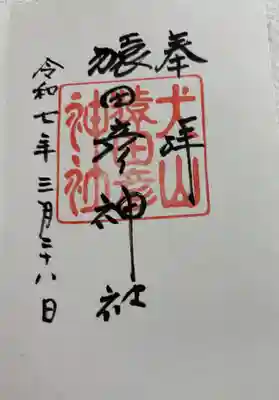 奉拝
猿田彦神社
令和七年三月二十八日
犬山
猿田彦
神社